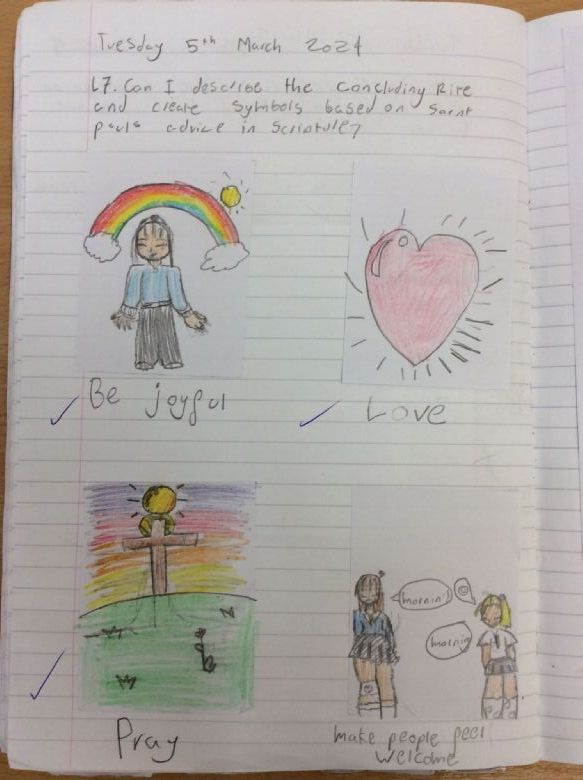 Tuesday 5th March 2024
L7. Can I describe the concluding Rite
and create symbols based on Saint
pauls advice in scripture?
Be joyful
Love
mornin'
morning
Pray
make people feel
welcome